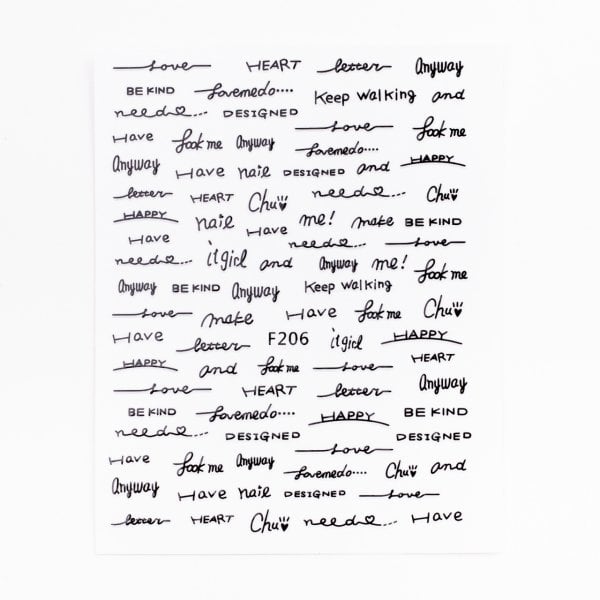 Love HEART letter Anyway
BE KIND Lovemedo.... Keep walking and
need♡... DESIGNED
Love
Have look me Anyway look me
Lovemedo....
Anyway Have nail DESIGNED and HAPPY
letter HEART Chu♥ need♡... Chu♥
HAPPY nail Have me! make BE KIND
Have need♡... Love
need♡... it girl and Anyway me! look me
Anyway BE KIND Anyway Keep walking
Love make Have look me Chu♥
Have letter F206 it girl HAPPY
HAPPY and look me Love HEART
Love HEART letter Anyway
BE KIND Lovemedo.... HAPPY BE KIND
need♡... DESIGNED DESIGNED
Love
Have look me Anyway Lovemedo.... Chu♥ and
Anyway Have nail DESIGNED Love
letter HEART Chu♥ need♡... Have